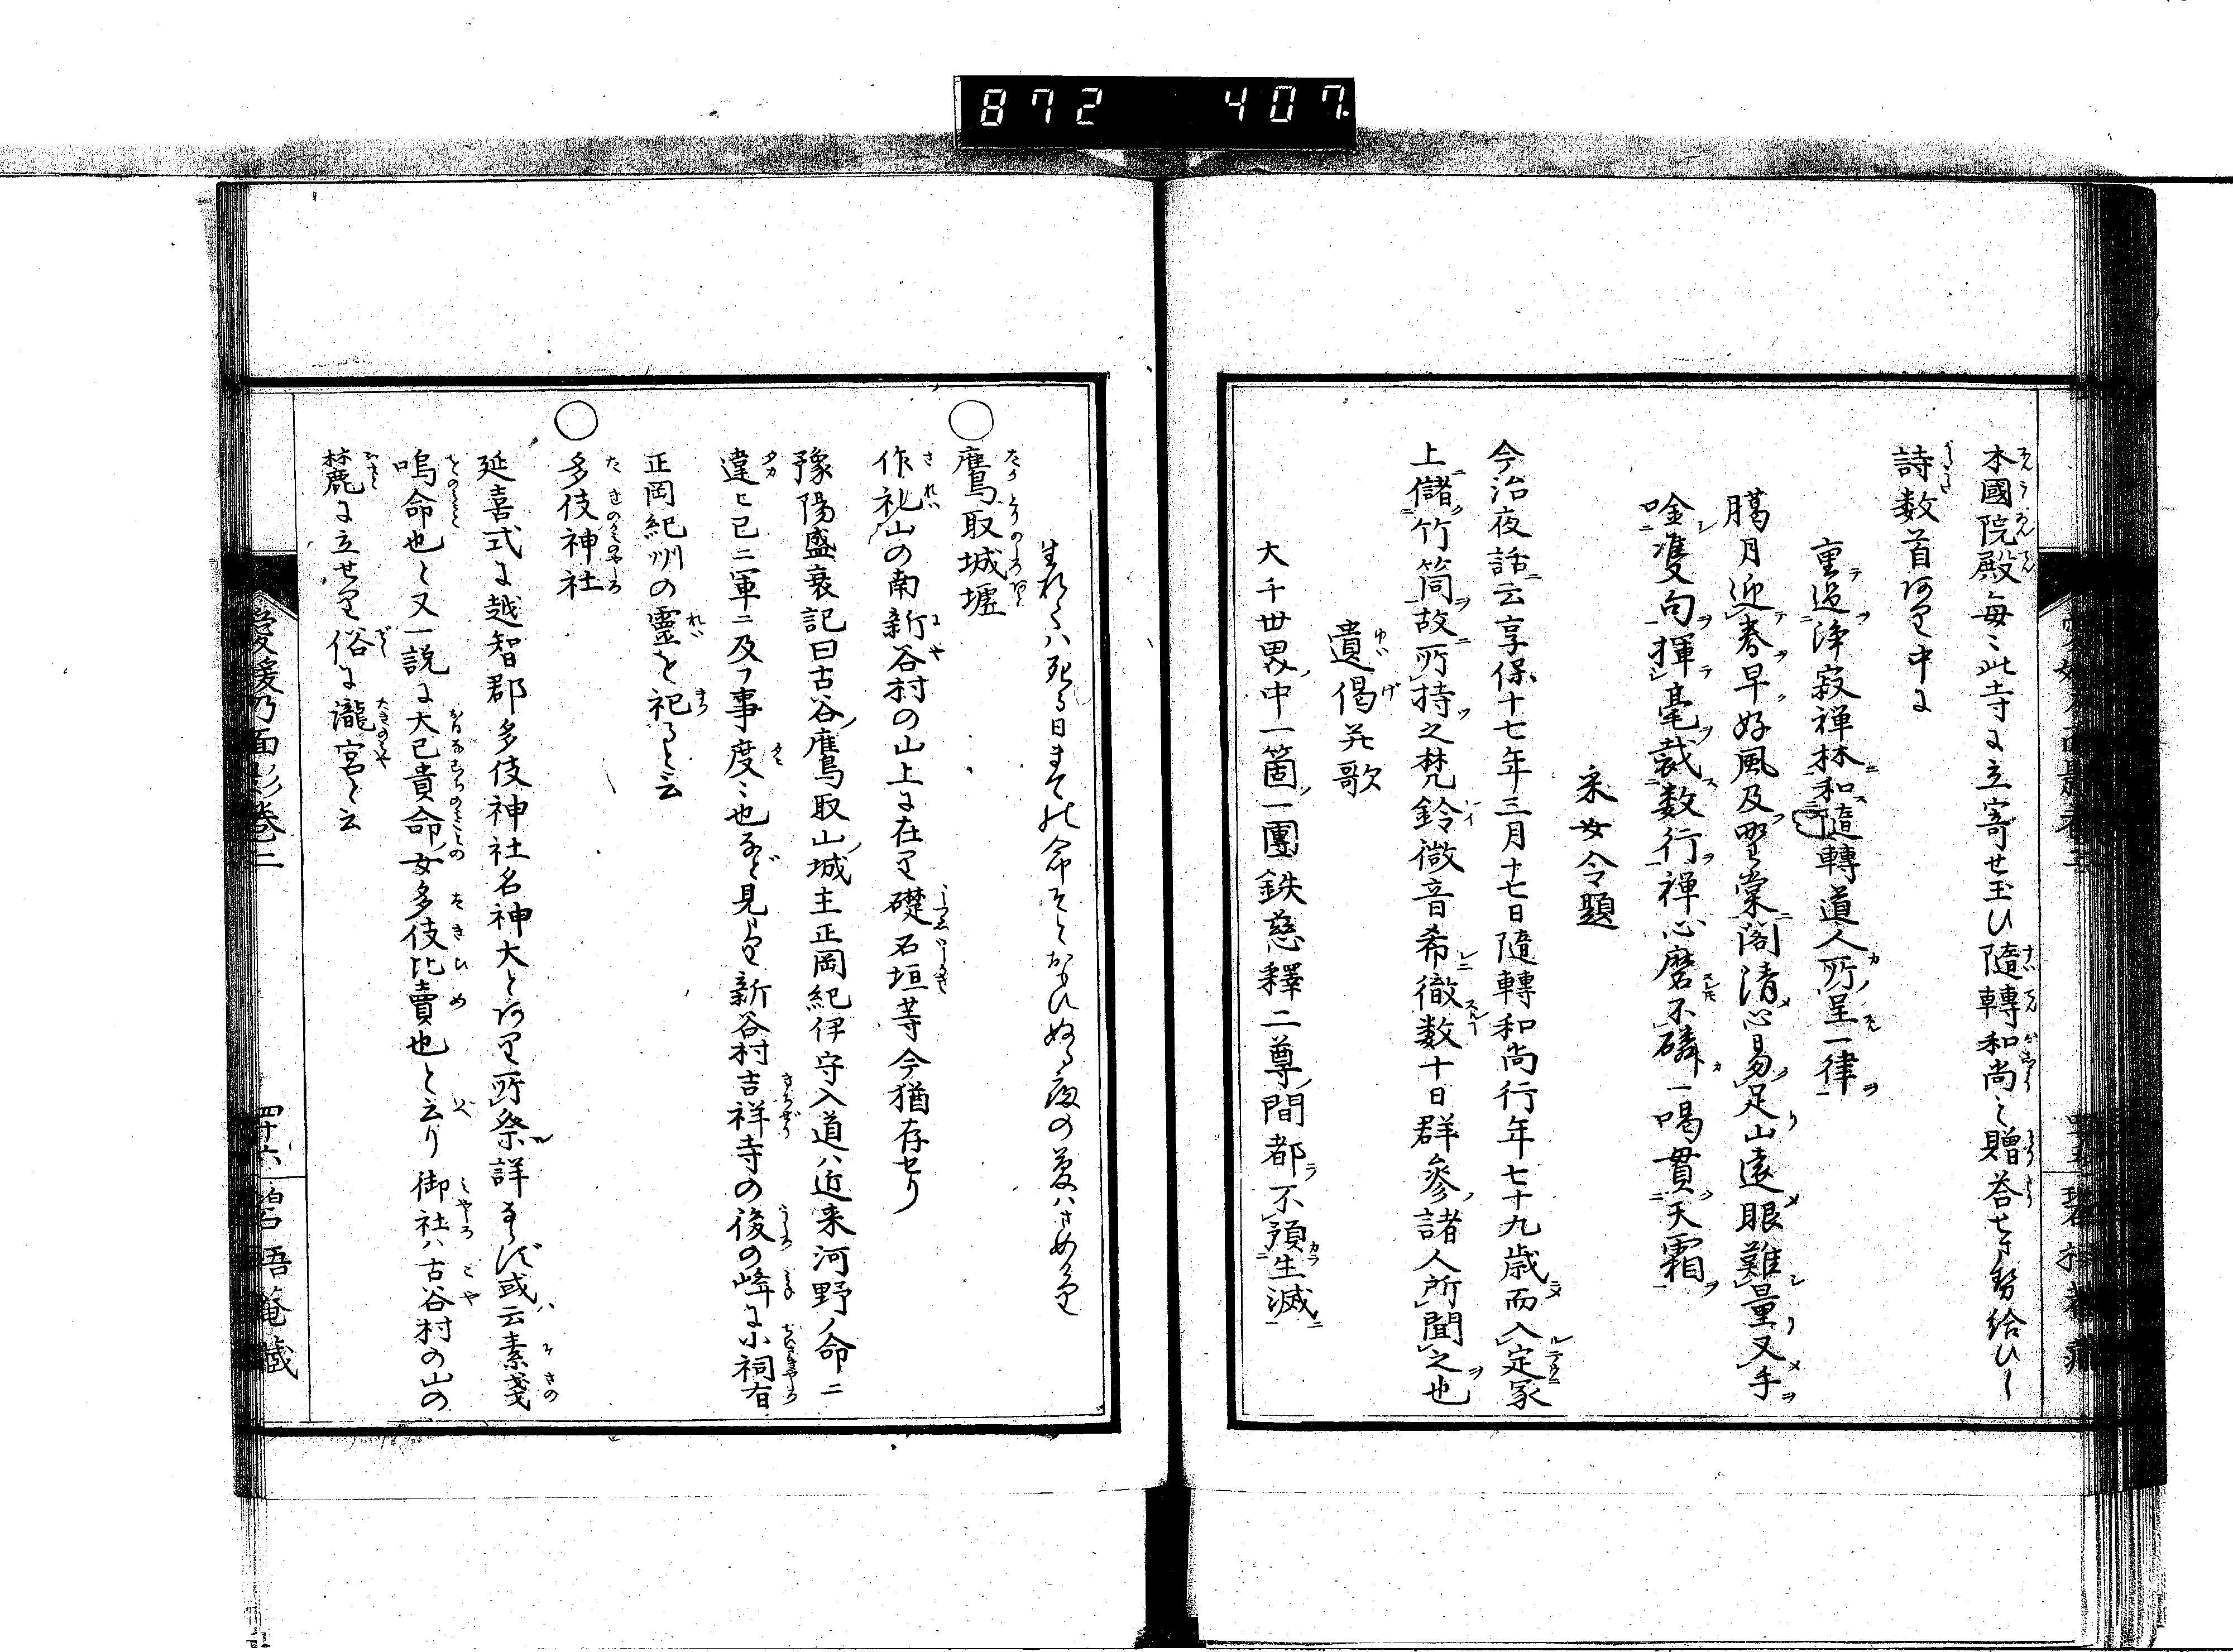 872 407.
本國院殿毎々此寺に立寄せ玉ひ隨轉和尚と贈答せさせ給ひし
詩数首ありて中に
重過浄寂禅林和隨轉道人所呈一律
臈月迎春早好風及野棠閣清心易足山遠眼難量叉手
唫隻句揮毫裁数行禅心磨不磷一喝貫天霜
采女令題
今治夜話云享保十七年三月十七日隨轉和尚行年七十九歳而入定冢
上儲竹筒故所持之梵鈴微音希徹数十日群參諸人所聞之也
遺偈并歌
大千世界中一箇一團鉄慈釋二尊間都不預生滅
鷹取城墟
作礼山の南新谷村の山上に在り礎石垣等今猶存せり
豫陽盛衰記曰古谷ノ鷹取山ノ城主正岡紀伊守入道ハ近来河野ノ命ニ
違ヒ已ニ軍ニ及フ事度々也など見えて新谷村吉祥寺の後の峰に小祠有
正岡紀州の靈を祀ると云
多伎神社
延喜式に越智郡多伎神社名神大とあり所祭詳ならず或云素戔
嗚命也と又一説に大己貴命ノ女多伎比賣也と云り御社ハ古谷村の山の
麓に立せり俗に瀧宮と云
愛媛乃面影巻二
四十六
碧梧菴蔵